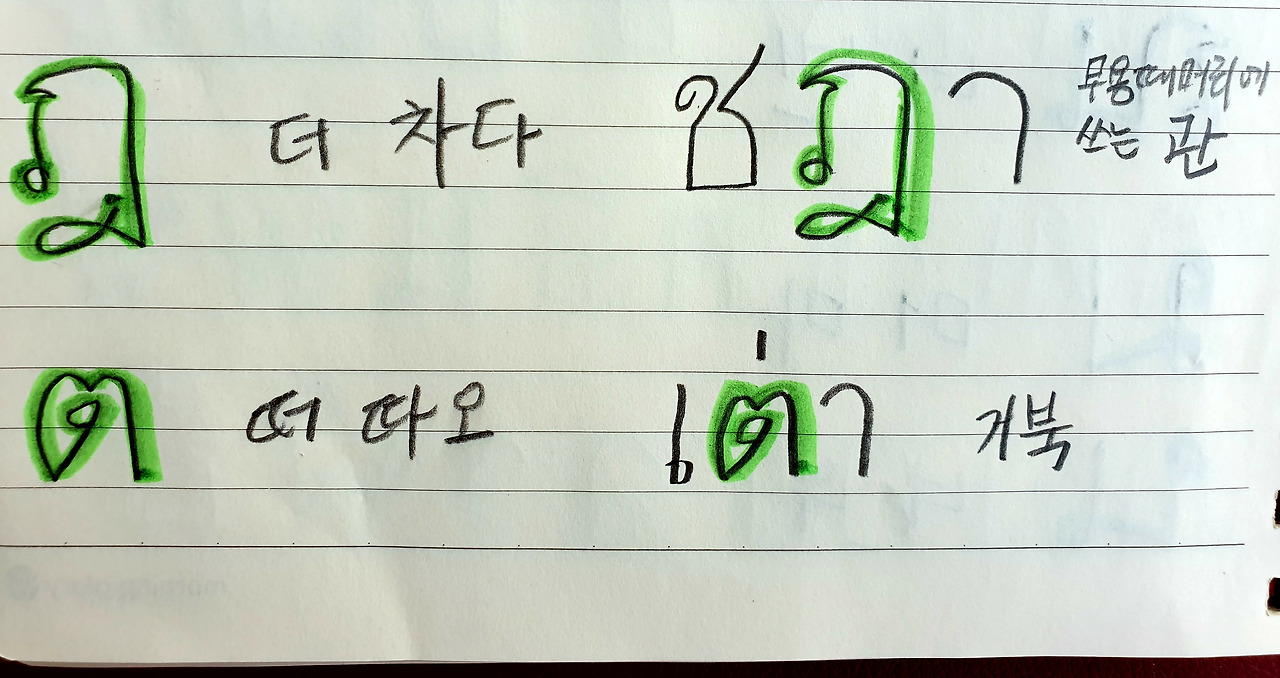 ฎ 더 차다 ชฎา 무용때머리에
쓰는 관
ต 떠 따오 เต่า 거북